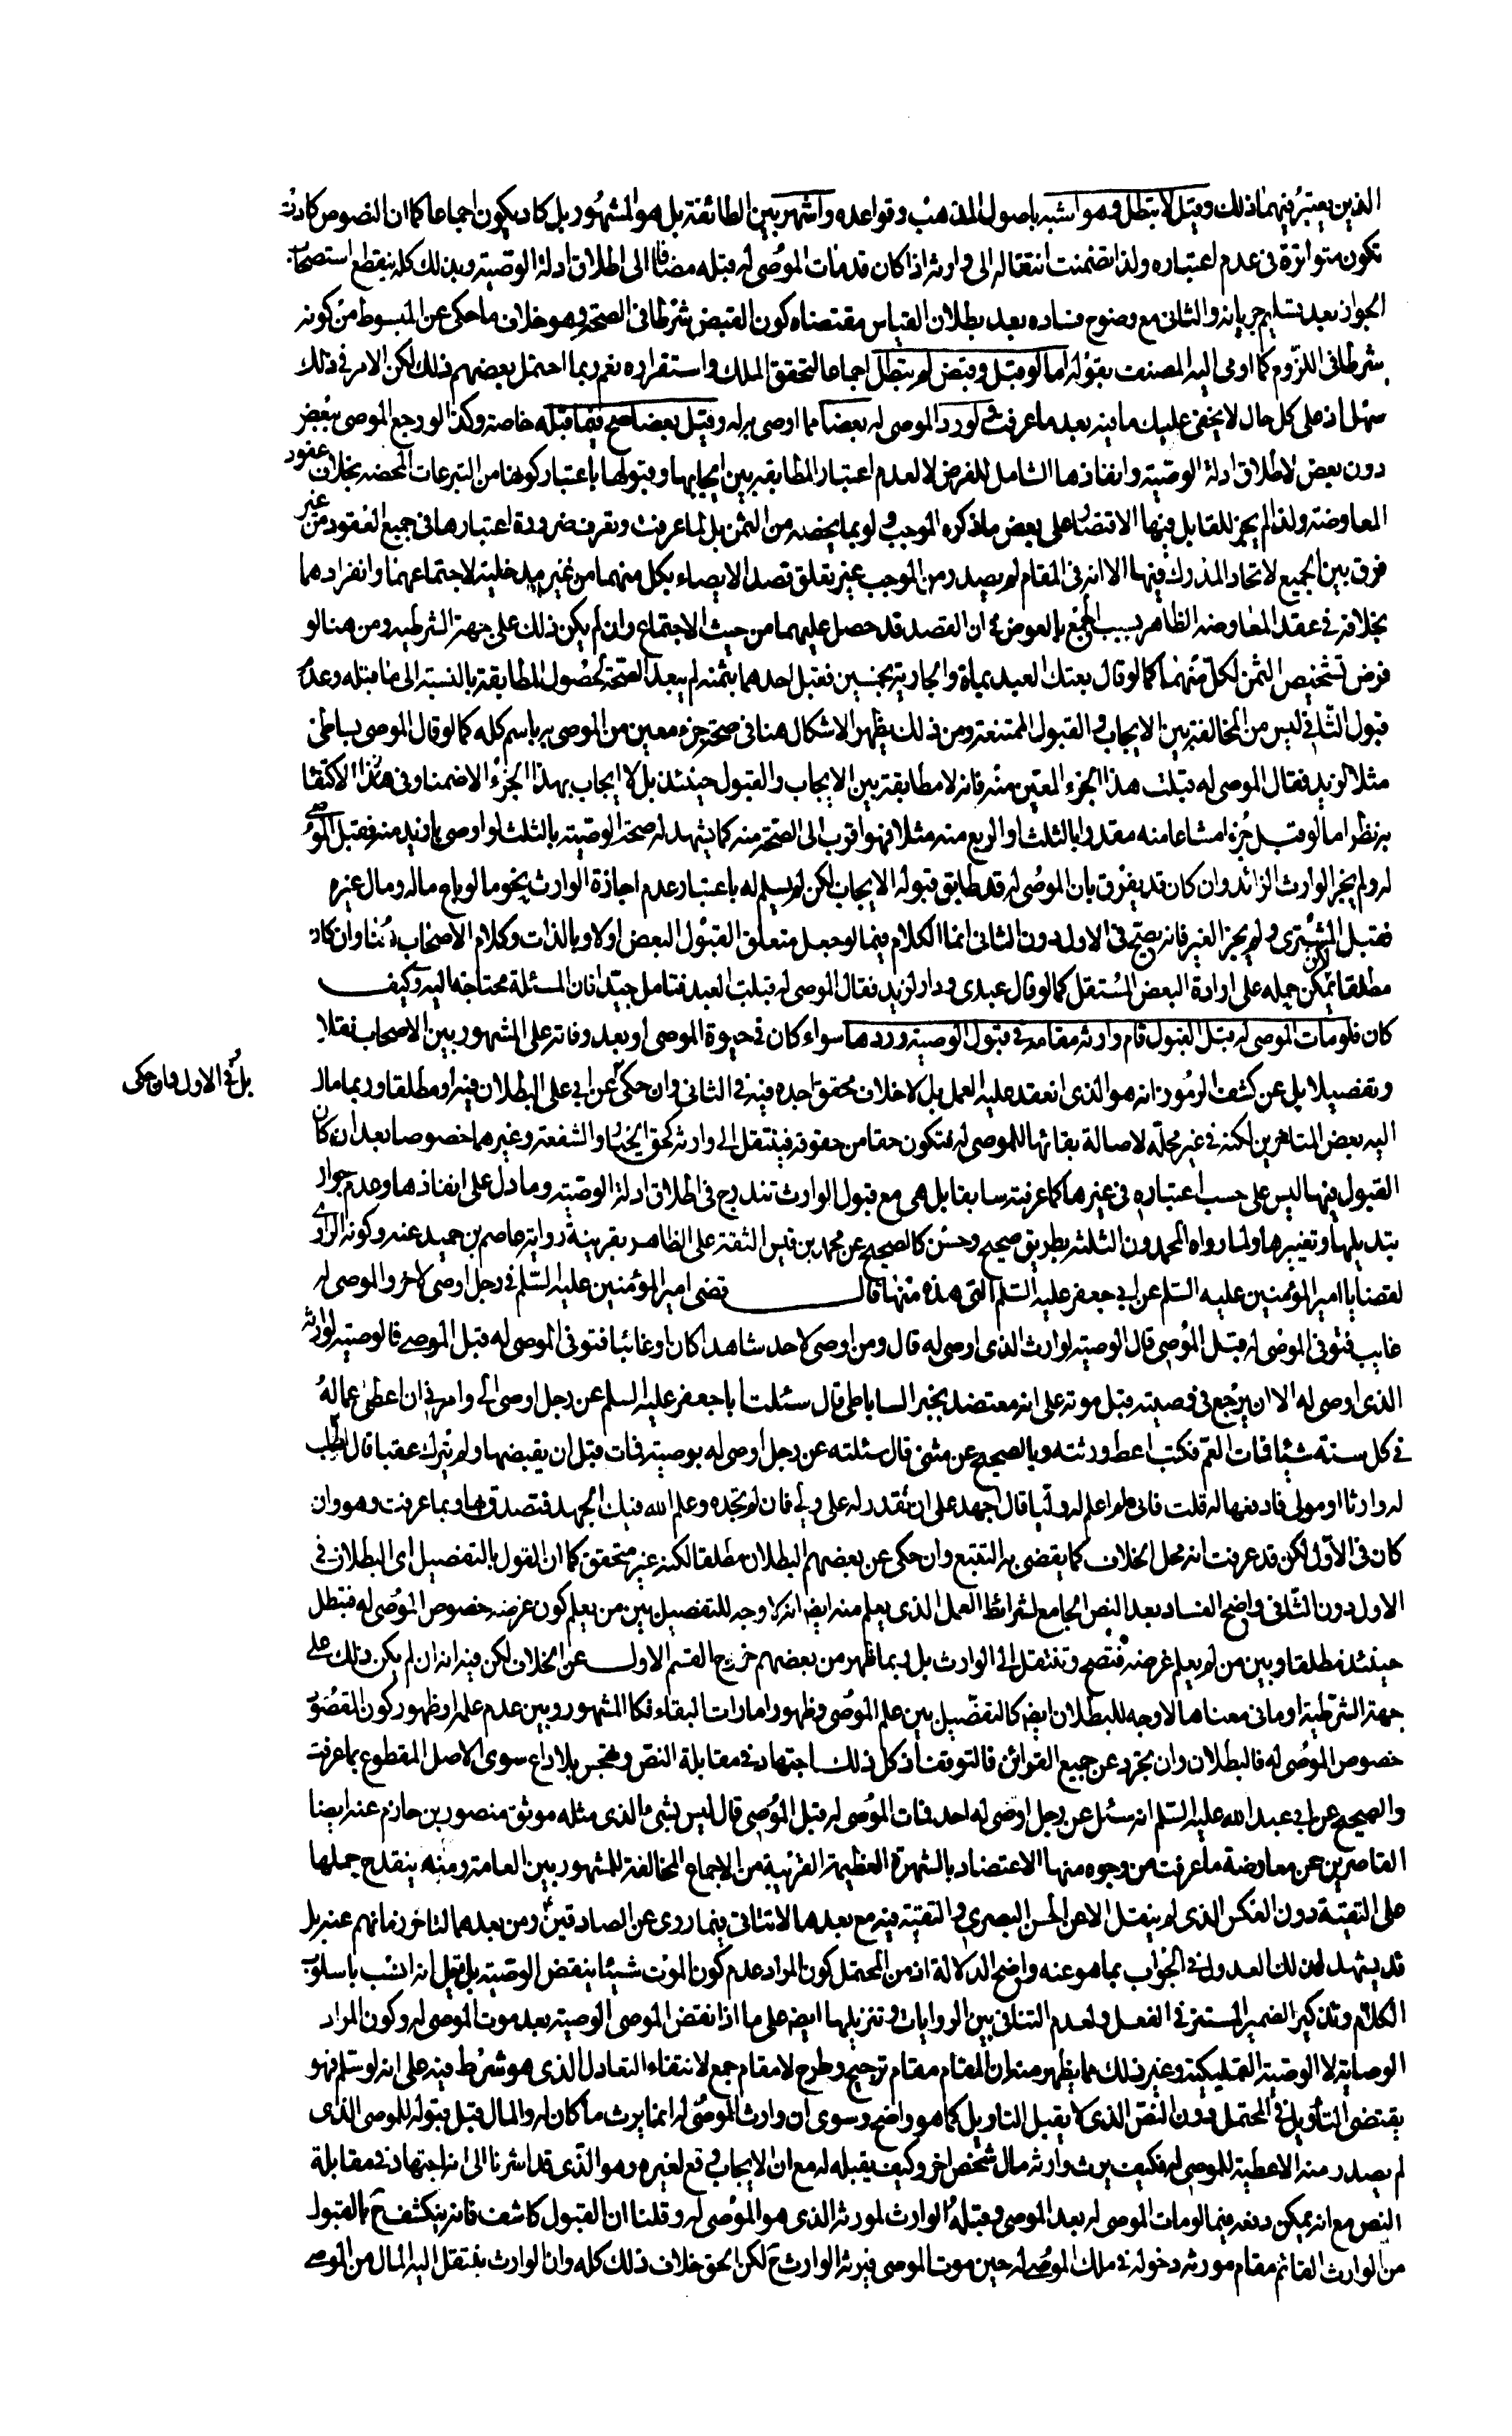 الذين يعتبر فيهما ذلك وقيل لا يبطل وهو اشبه باصول المذهب وقواعده واشهر بين الطائفة بل هو المشهور بل كاد يكون اجماعا كما ان النصوص كادت
تكون متواترة في عدم اعتباره ولذا تضمنت انتقاله الى وارثه اذا كان قد مات الموصى له قبله مضافا الى اطلاق ادلة الوصية وبذلك كله ينقطع استصحاب
الجواز بعد تسليم جريانه والثاني مع وضوح فساده بعد بطلان القياس مقتضاه كون القبض شرطا في الصحة وهو خلاف ما حكى عن المبسوط من كونه
شرطا في اللزوم كما اومى اليه المصنف بقوله اما لو قبل وقبض لم يبطل اجماعا لتحقق الملك واستقراره نعم ربما احتمل بعضهم ذلك لكن الامر في ذلك
سهل اذ على كل حال لا يخفى عليك ما فيه بعد ما عرفت ولو رد الموصى له بعضا مما اوصى به له وقبل بعضا صح فيما قبله خاصة وكذا لو رجع الموصى ببعض
دون بعض لاطلاق ادلة الوصية وانفاذها الشامل للفرض لا لعدم اعتبار المطابقة بين ايجابها وقبولها باعتبار كونها من التبرعات المحضه بخلاف عقود
المعاوضة ولذا لم يجز للقابل فيها الاقتصار على بعض ما ذكره الموجب ولو بما يخصه من الثمن بل لما عرفت وتعرف ضرورة اعتبارها في جميع العقود من غير
فرق بين الجميع لاتحاد المدرك فيها الا انه في المقام لم يصدر من الموجب غير تعلق قصد الايصاء بكل منهما من غير مدخلية لاجتماعهما وانفرادهما
بخلافه في عقد المعاوضه الظاهر بسبب الجمع بالعوض في ان القصد قد حصل عليهما من حيث الاجتماع وان لم يكن ذلك على جهة الشرطيه ومن هنا لو
فرض تشخيص الثمن لكل منهما كما لو قال بعتك العبد بماة والجارية بخمسين فقبل احدهما بثمنه لم يبعد الصحة لحصول المطابقة بالنسبة الى ما قبله وعدم
قبول الثاني ليس من المخالفة بين الايجاب والقبول الممتنعة ومن ذلك يظهر الاشكال هنا في صحة جزء معين من الموصى به باسم كله كما لو قال الموصى بساطى
مثلا لزيد فقال الموصى له قبلت هذا الجزء المعين منه فانه لا مطابقة بين الايجاب والقبول حينئذ بل لا ايجاب بهذا الجزء الا ضمنا وفي هذا الاكتفا
به نظر اما لو قبل جزء مشاعا منه مقدرا بالثلث او الربع منه مثلا فهو اقرب الى الصحة منه كما يشهد له صحة الوصية بالثلث لو اوصى بازيد منه فقبل الموصى
له ولم يجز الوارث الزائد وان كان قد يفرق بان الموصى له قد طابق قبوله الايجاب لكن لم يسلم له باعتبار عدم اجازة الوارث نحو ما لو باع ماله ومال غيره
فقبل المشترى ولم يجز الغير فانه يصح في الاول دون الثاني انما الكلام فيما لو جعل متعلق القبول البعض اولا وبالذات وكلام الاصحاب هنا وان كان
مطلقا لكن يمكن حمله على ارادة البعض المستقل كما لو قال عبدى ودار لزيد فقال الموصى له قبلت العبد فتامل جيدا فان المسئلة محتاجه اليه وكيف
كان فلو مات الموصى له قبل القبول قام وارثه مقامه في قبول الوصية وردها سواء كان في حيوة الموصى او بعد وفاته على المشهور بين الاصحاب نقلا
وتحصيلا بل عن كشف الرموز انه هو الذى انعقد عليه العمل بل لا خلاف محقق اجده فيه في الثاني وان حكى عن ابي على البطلان فيه او مطلقا وربما مال
بل في الاول وان حكى
اليه بعض المتاخرين لكنه في غير محله لاصالة بقائها للموصى له فتكون حقا من حقوقه فينتقل الى وارثه كحق الخيار والشفعة وغيرهما خصوصا بعد ان كان
القبول فيها ليس على حسب اعتباره في غيرها كما عرفته سابقا بل هي مع قبول الوارث تندرج في اطلاق ادلة الوصية وما دل على انفاذها وعدم جواز
تبديلها وتغييرها ولما رواه المحمدون الثلثة بطريق صحيح وحسن كالصحيح عن محمد بن قيس الثقة على الظاهر بقرينة رواية عاصم بن حميد عنه وكونه الراوى
لقضايا امير المؤمنين عليه السلم عن ابي جعفر عليه السلم التى هذه منها قال قضى امير المؤمنين عليه السلم في رجل اوصى لاخر والموصى له
غايب فتوفى الموصى له قبل الموصى قال الوصية لوارث الذى اوصى له قال ومن اوصى لاحد شاهدا كان او غائبا فتوفى الموصى له قبل الموصى فالوصية لوارثه
الذى اوصى له الا ان يرجع في وصيته قبل موته على انه معتضد بخبر الساباطى قال سئلت ابا جعفر عليه السلم عن رجل اوصى الى وامرنى ان اعطى عما له
في كل سنة شيئا فمات العم فكتب اعط ورثته وبالصحيح عن مثنى قال سئلته عن رجل اوصى له بوصية فمات قبل ان يقبضها ولم يترك عقبا قال اطلب
له وارثا او مولى فادفعها له قلت فان لم اعلم له وليا قال اجهد على ان تقدر له على ولى فان لم تجده وعلم الله فيك الجهد فتصدق بها وبما عرفت وهو وان
كان في الاول لكن قد عرفت انه محل الخلاف كما يقضى به التتبع وان حكى عن بعضهم البطلان مطلقا لكنه غير متحقق كما ان القول بالتفصيل اى البطلان في
الاول دون الثاني واضح الفساد بعد النص الجامع لشرائط العمل الذى يعلم منه ايضا انه لا وجه للتفصيل بين من يعلم كون غرضه خصوص الموصى له فتبطل
حينئذ مطلقا وبين من لم يعلم غرضه فتصح وتنتقل الى الوارث بل ربما ظهر من بعضهم خروج القسم الاول عن الخلاف لكن فيه انه ان لم يكن ذلك على
جهة الشرطية او ما في معناها لا وجه للبطلان ايضا كالتفصيل بين علم الموصى وظهور امارات البقاء فكالمشهور وبين عدم علمه وظهور كون المقصود
خصوص الموصى له فالبطلان وان تجرد عن جميع القرائن فالتوقف اذ كل ذلك اجتهاد في مقابلة النص وتهجس بلا داع سوى الاصل المقطوع بما عرفت
والصحيح عن ابي عبد الله عليه السلم انه سئل عن رجل اوصى له احد فمات الموصى له قبل الموصى قال ليس بشئ الذى مثله موثق منصور بن حازم عنه ايضا
القاصرين عن معاوضة ما عرفت من وجوه منها الاعتضاد بالشهرة العظيمة القريبة من الاجماع المخالفة للمشهور بين العامة ومنه ينقدح حملها
على التقية دون العكس الذى لم ينقل الا عن الحسن البصرى والتقية فيه مع بعدها لا تتاتى فيما روى عن الصادقين ومن بعدهما لتاخر زمانهم عنه بل
قد يشهد لذلك العدول في الجواب بما هو عنه واضح الدلالة اذ من المحتمل كون المراد عدم كون الموت شيئا ينقض الوصية بل قيل انه انسب باسلوب
الكلام وتذكير الضمير المستتر في الفعل ولعدم التنافى بين الروايات وتنزيلها ايضا على ما اذا نقض الموصى الوصية بعد موت الموصى له وكون المراد
الوصاية لا الوصية التمليكية وغير ذلك مما يظهر منه ان المقام مقام ترجيح وطرح لا مقام جمع لانتفاء التعادل الذى هو شرط فيه على انه لو سلم فهو
يقتضى التأويل في المحتمل دون النص الذى لا يقبل التاويل كما هو واضح وسوى ان وارث الموصى له انما يرث ما كان له والمال قبل قبوله للموصى الذى
لم يصدر منه الا عطية للموصى له فكيف يرث وارثه مال شخص اخر وكيف يقبله له مع ان الايجاب وقع لغيره وهو الذى قد اشرنا الى انه اجتهاد في مقابلة
النص مع انه يمكن دفعه فيما لو مات الموصى له بعد الموصى وقبله الوارث لمورثه الذى هو الموصى له وقلنا ان القبول كاشف فانه ينكشف ح بالقبول
من الوارث القائم مقام مورثه دخوله في ملك الموصى له حين موت الموصى فيرثه الوارث ح لكن الحق خلاف ذلك كله وان الوارث ينتقل اليه المال من الموصى